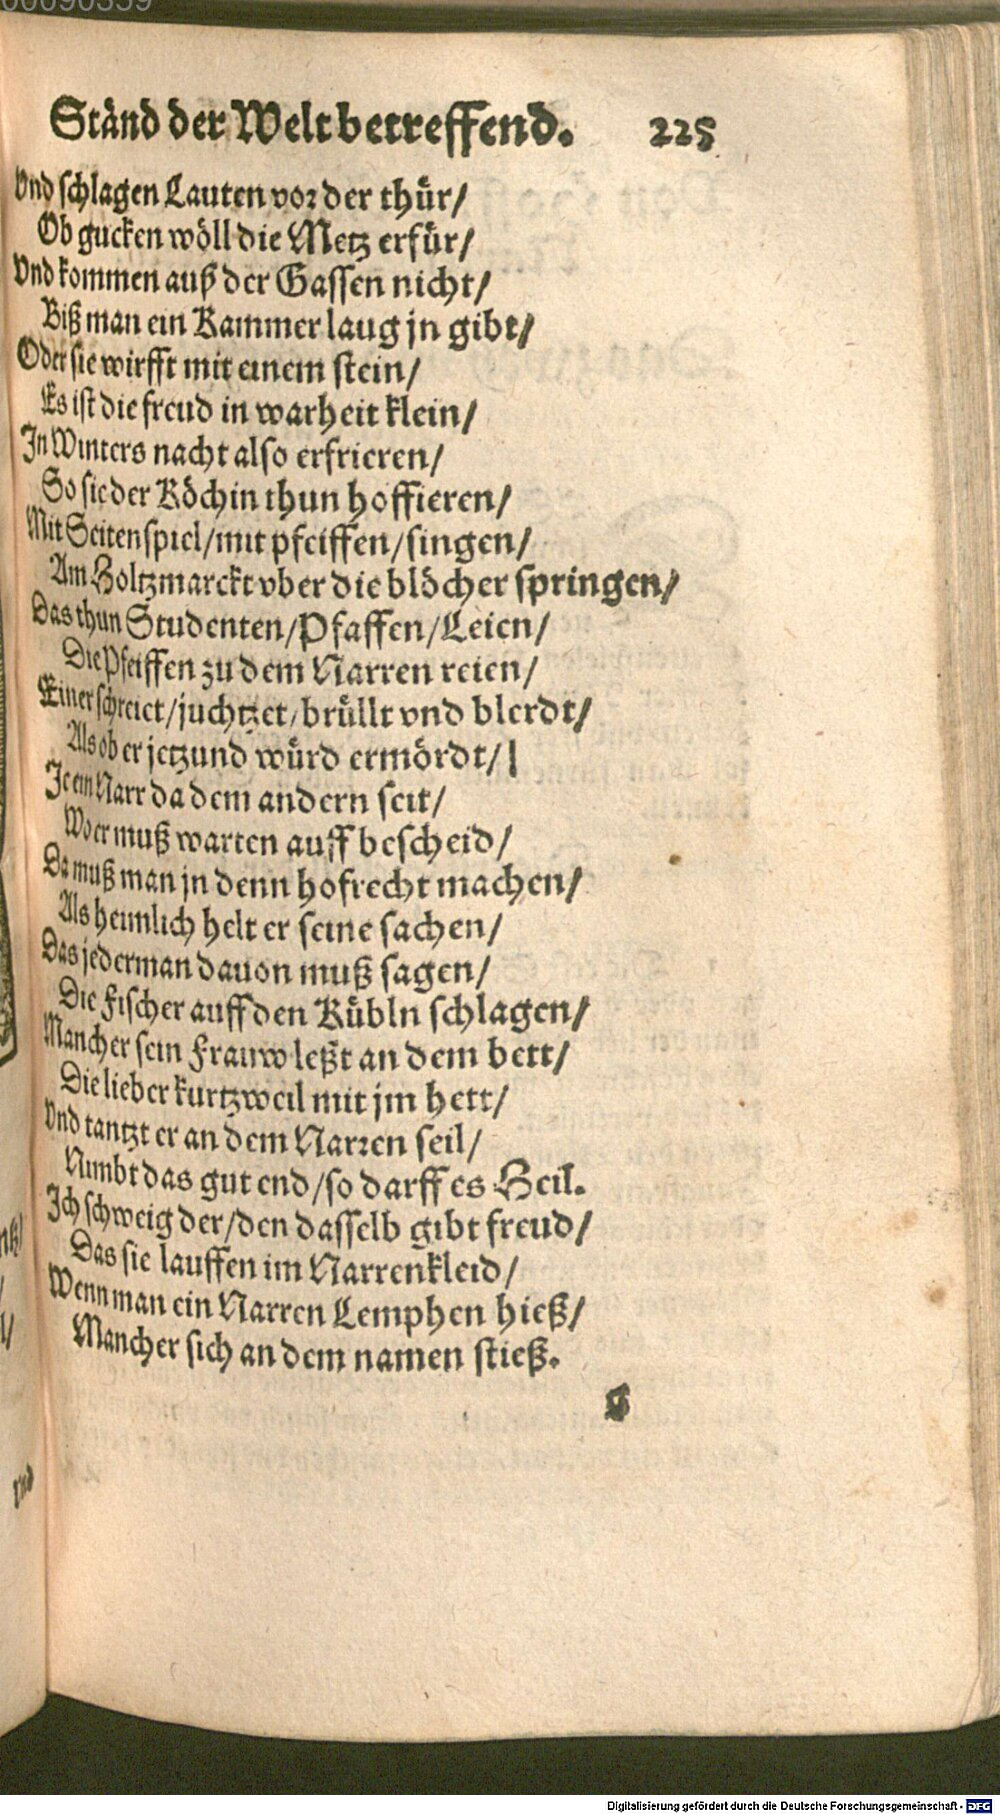 00090359
Ständ der Welt betreffend. 225
Vnd schlagen Lauten vor der thür/
Ob gucken wöll die Metz erfür/
Vnd kommen auß der Gassen nicht/
Biß man ein Kammerlaug jn gibt/
Oder sie wirfft mit einem stein/
Es ist die freud in warheit klein/
In Winters nacht also erfrieren/
So sie der Köchin thun hoffieren/
Mit Seitenspiel/mit pfeiffen/singen/
Am Holtzmarckt vber die blöcher springen/
Das thun Studenten/Pfaffen/Leien/
Die Pfeiffen zu dem Narren reien/
Einer schreiet/juchtzet/brüllt vnd blerdt/
Als ob er jetzund würd ermördt/
Je ein Narr da dem andern seit/
Wo er muß warten auff bescheid/
Da muß man jn denn hofrecht machen/
Als heimlich helt er seine sachen/
Das jederman dauon muß sagen/
Die Fischer auff den Kübln schlagen/
Mancher sein Frauw leßt an dem bett/
Die lieber kurtzweil mit jm hett/
Vnd tantzt er an dem Narren seil/
Nimbt das gut end/so darff es Heil.
Ich schweig der/den dasselb gibt freud/
Das sie lauffen im Narrenkleid/
Wenn man ein Narren Lemphen hieß/
Mancher sich an dem namen stieß.
Vnd
Digitalisierung gefördert durch die Deutsche Forschungsgemeinschaft - DFG